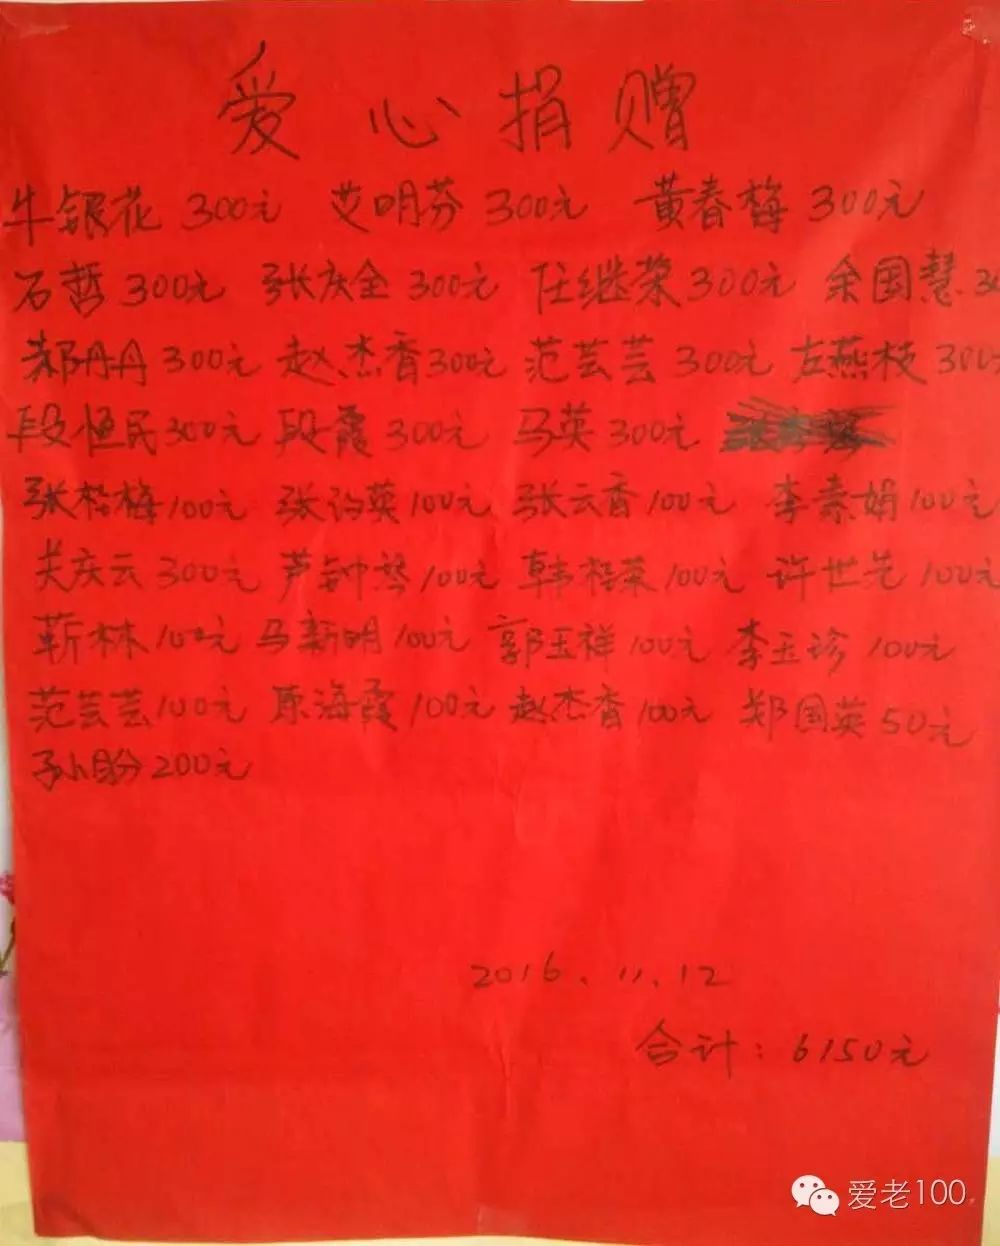 爱心捐赠
牛银花 300元 艾明芬 300元 黄春梅 300元
石哲 300元 张庆全 300元 任继荣 300元 余国慧 30
郑丹丹 300元 赵杰香 300元 范芸芸 300元 左燕枝 300元
段恒民 300元 段霞 300元 马英 300元
张松梅 100元 张 英 100元 张云香 100元 李素娟 100元
关庆云 300元 芦钟琴 100元 韩松荣 100元 许世先 100元
靳林 100元 马新明 100元 郭玉祥 100元 李玉珍 100元
范芸芸 100元 原海霞 100元 赵杰香 100元 郑国英 50元
孙盼 200元
2016.11.12
合计：6150元
爱老100